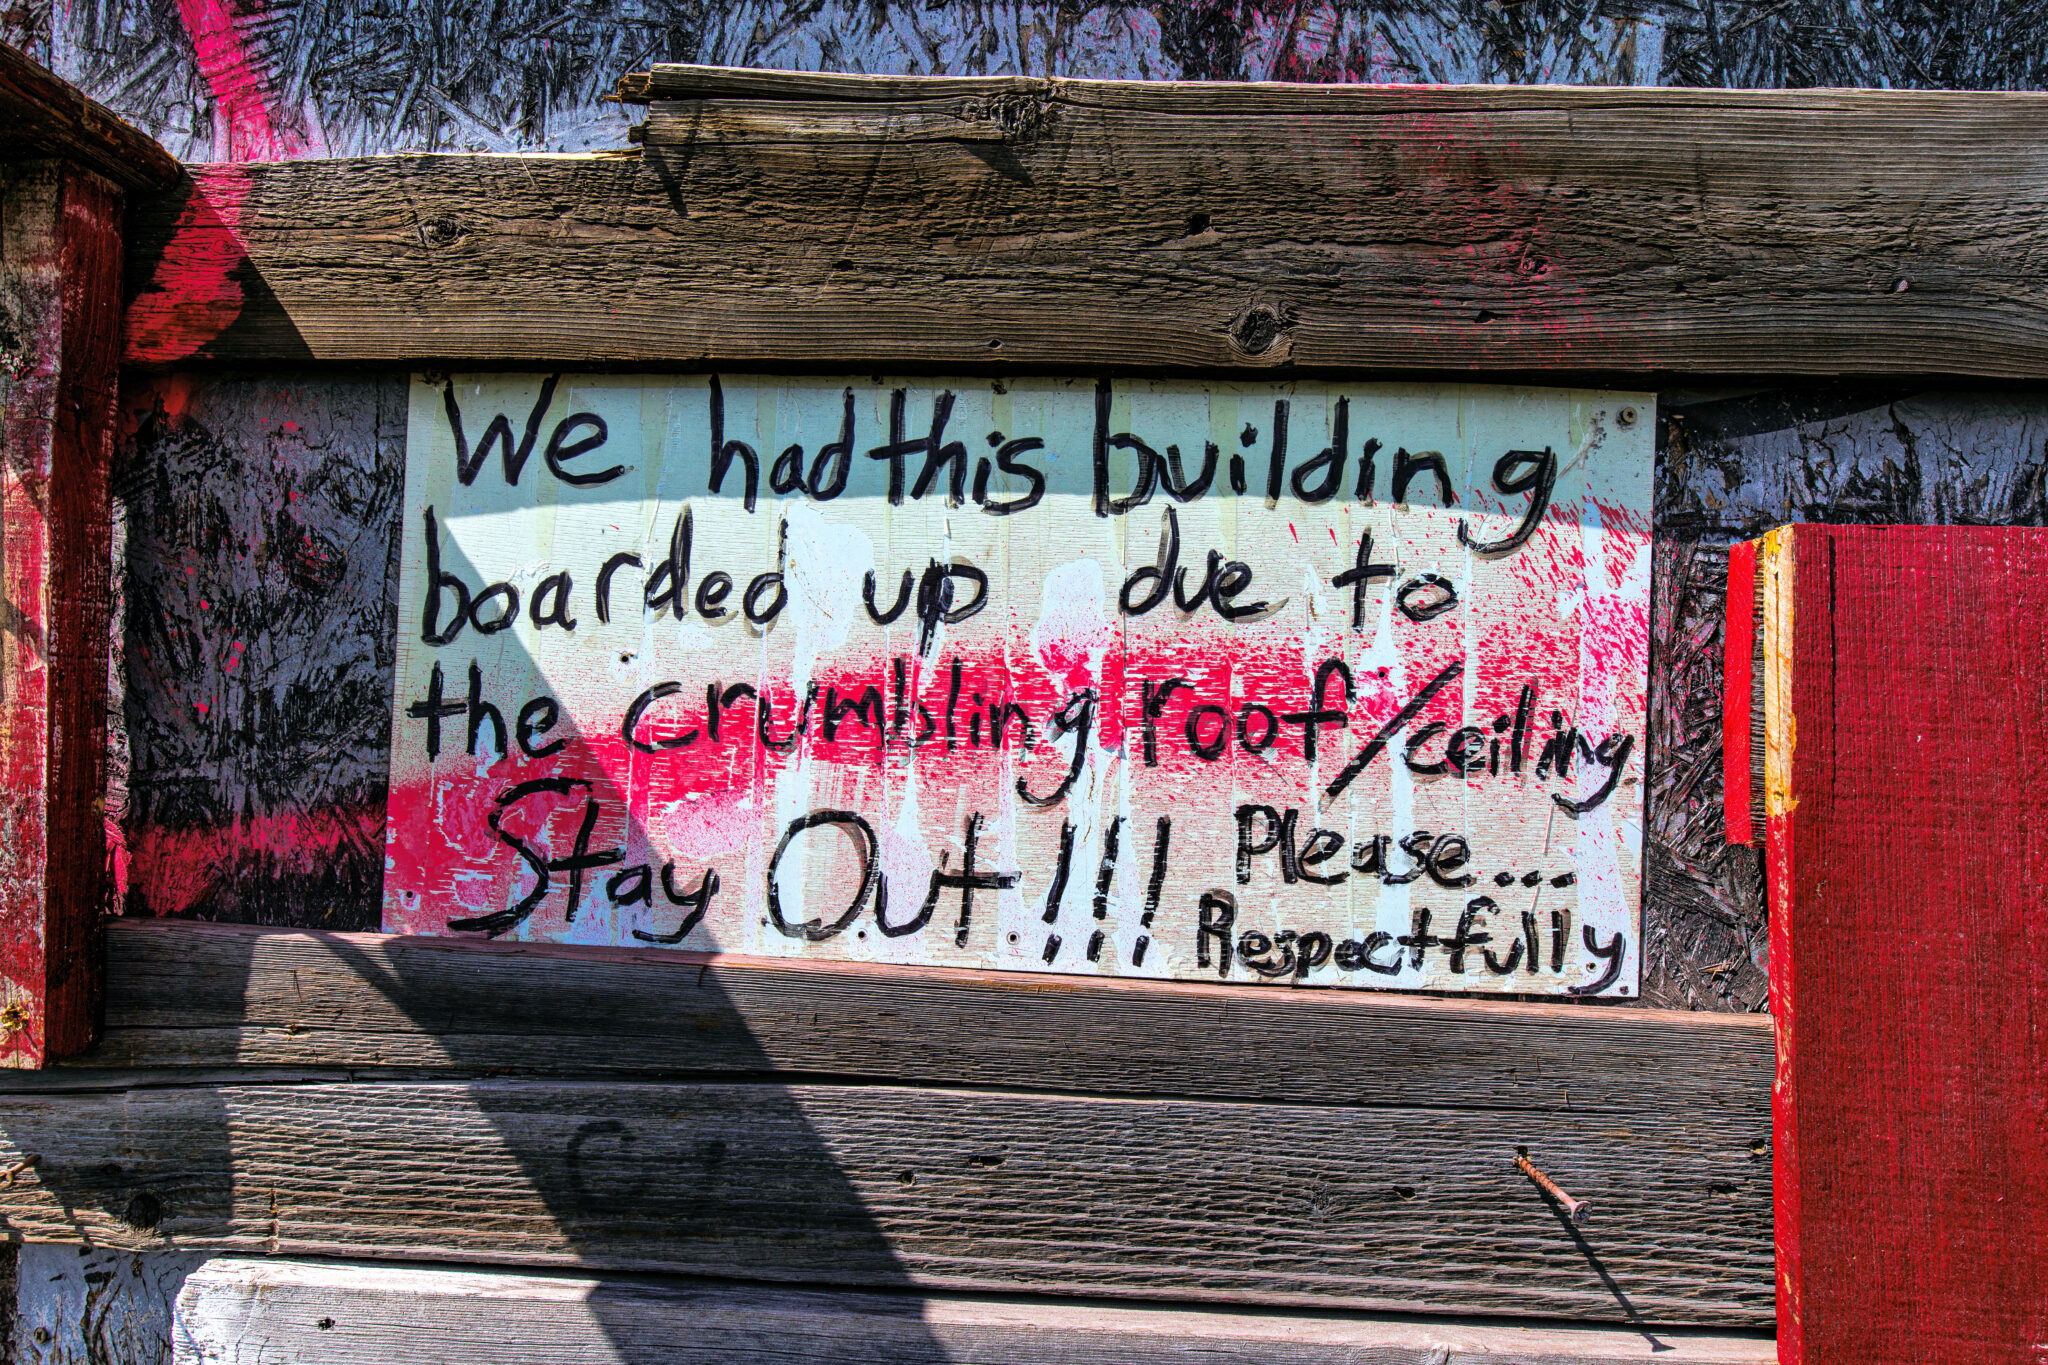 We had this building
boarded up due to
the crumbling roof/ceiling
Stay Out!!! Please...
Respectfully